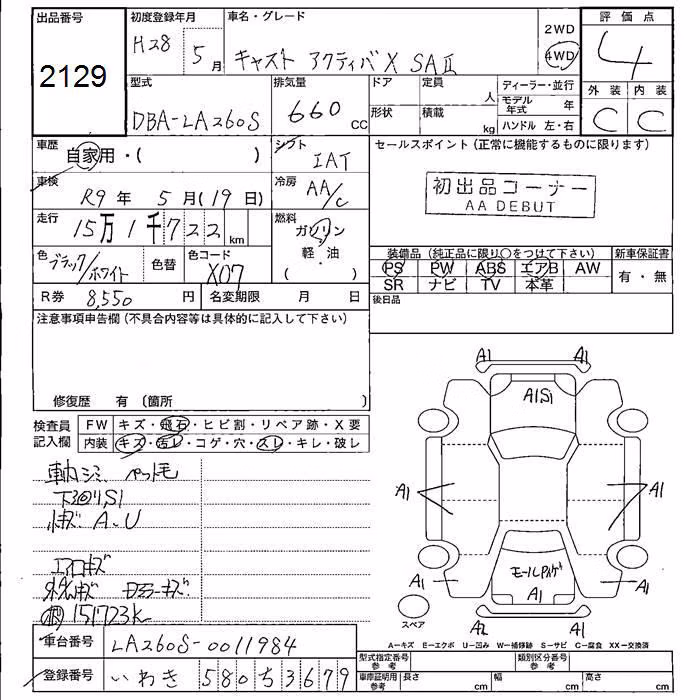 出品番号
2129
初度登録年月
H28 5月
車名・グレード
キャスト アクティバX SAⅡ
2WD
4WD
評価点
4
外装 内装
C C
型式
DBA-LA260S
排気量
660 CC
ドア 定員 人
形状 積載 kg
ディーラー・並行
モデル年式 年
ハンドル 左・右
車歴
自家用・( )
シフト
IAT
セールスポイント (正常に機能するものに限ります)
初出品コーナー
AA DEBUT
車検
R9年 5月(19日)
冷房
AA/C
走行
15万1千722km
燃料
ガソリン
軽・油
( )
色
ブラック/ホワイト
色替
色コード
X07
装備品 (純正品に限り〇をつけて下さい) 新車保証書
PS PW ABS エアB AW
SR ナビ TV 本革
有・無
R券 8,550円
名変期限 月 日
後日品
注意事項申告欄(不具合内容等は具体的に記入して下さい)
修復歴 有 (箇所 )
検査員記入欄
FW キズ・飛石・ヒビ割・リペア跡・X要
内装 キズ・汚レ・コゲ・穴・スレ・キレ・破レ
シミ ペット毛
下回りS1
A、U
エアロキズ
151723K
A1 A1
A1S1
A1 A1
A1 A1
モール
A1
A2 A1
スペア
A=キズ E=エクボ U=凹み W=補修跡 S=サビ C=腐食 XX=交換済
車台番号
LA260S-0011984
登録番号
いわき 580 ち 3679
型式指定番号 参考
類別区分番号 参考
車庫証明用 参考 長さ cm 幅 cm 高さ cm